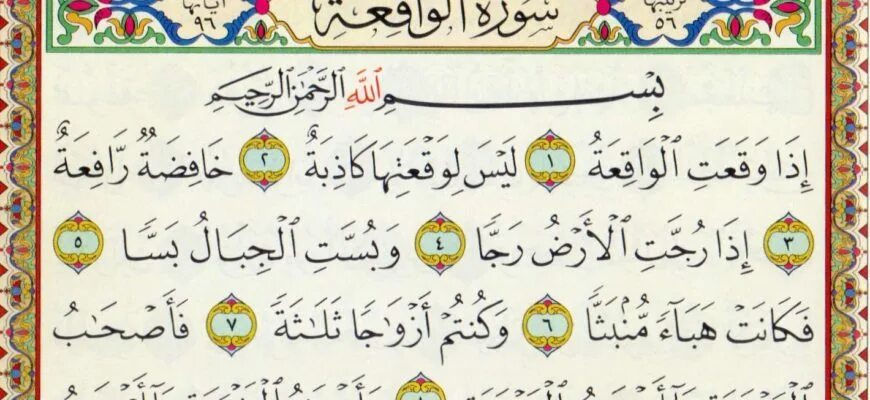 آياتها ٩٦ سورة الواقعة ترتيبها ٥٦
بِسْمِ اللَّهِ الرَّحْمَٰنِ الرَّحِيمِ
إِذَا وَقَعَتِ ٱلْوَاقِعَةُ ١ لَيْسَ لِوَقْعَتِهَا كَاذِبَةٌ ٢ خَافِضَةٌ رَّافِعَةٌ
٣ إِذَا رُجَّتِ ٱلْأَرْضُ رَجًّا ٤ وَبُسَّتِ ٱلْجِبَالُ بَسًّا ٥
فَكَانَتْ هَبَآءً مُّنۢبَثًّا ٦ وَكُنتُمْ أَزْوَٰجًا ثَلَٰثَةً ٧ فَأَصْحَٰبُ